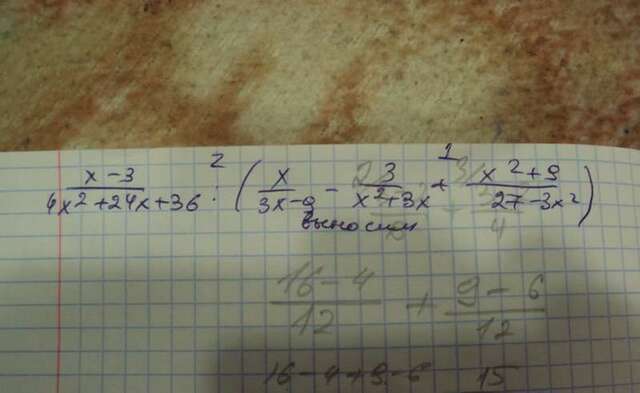 2 1
x-3/4x²+24x+36 : (x/3x-9 - 3/x²+3x + x²+9/27-3x²)
выносим
16-4/12 + 9-6/12
16-4+9-6 15